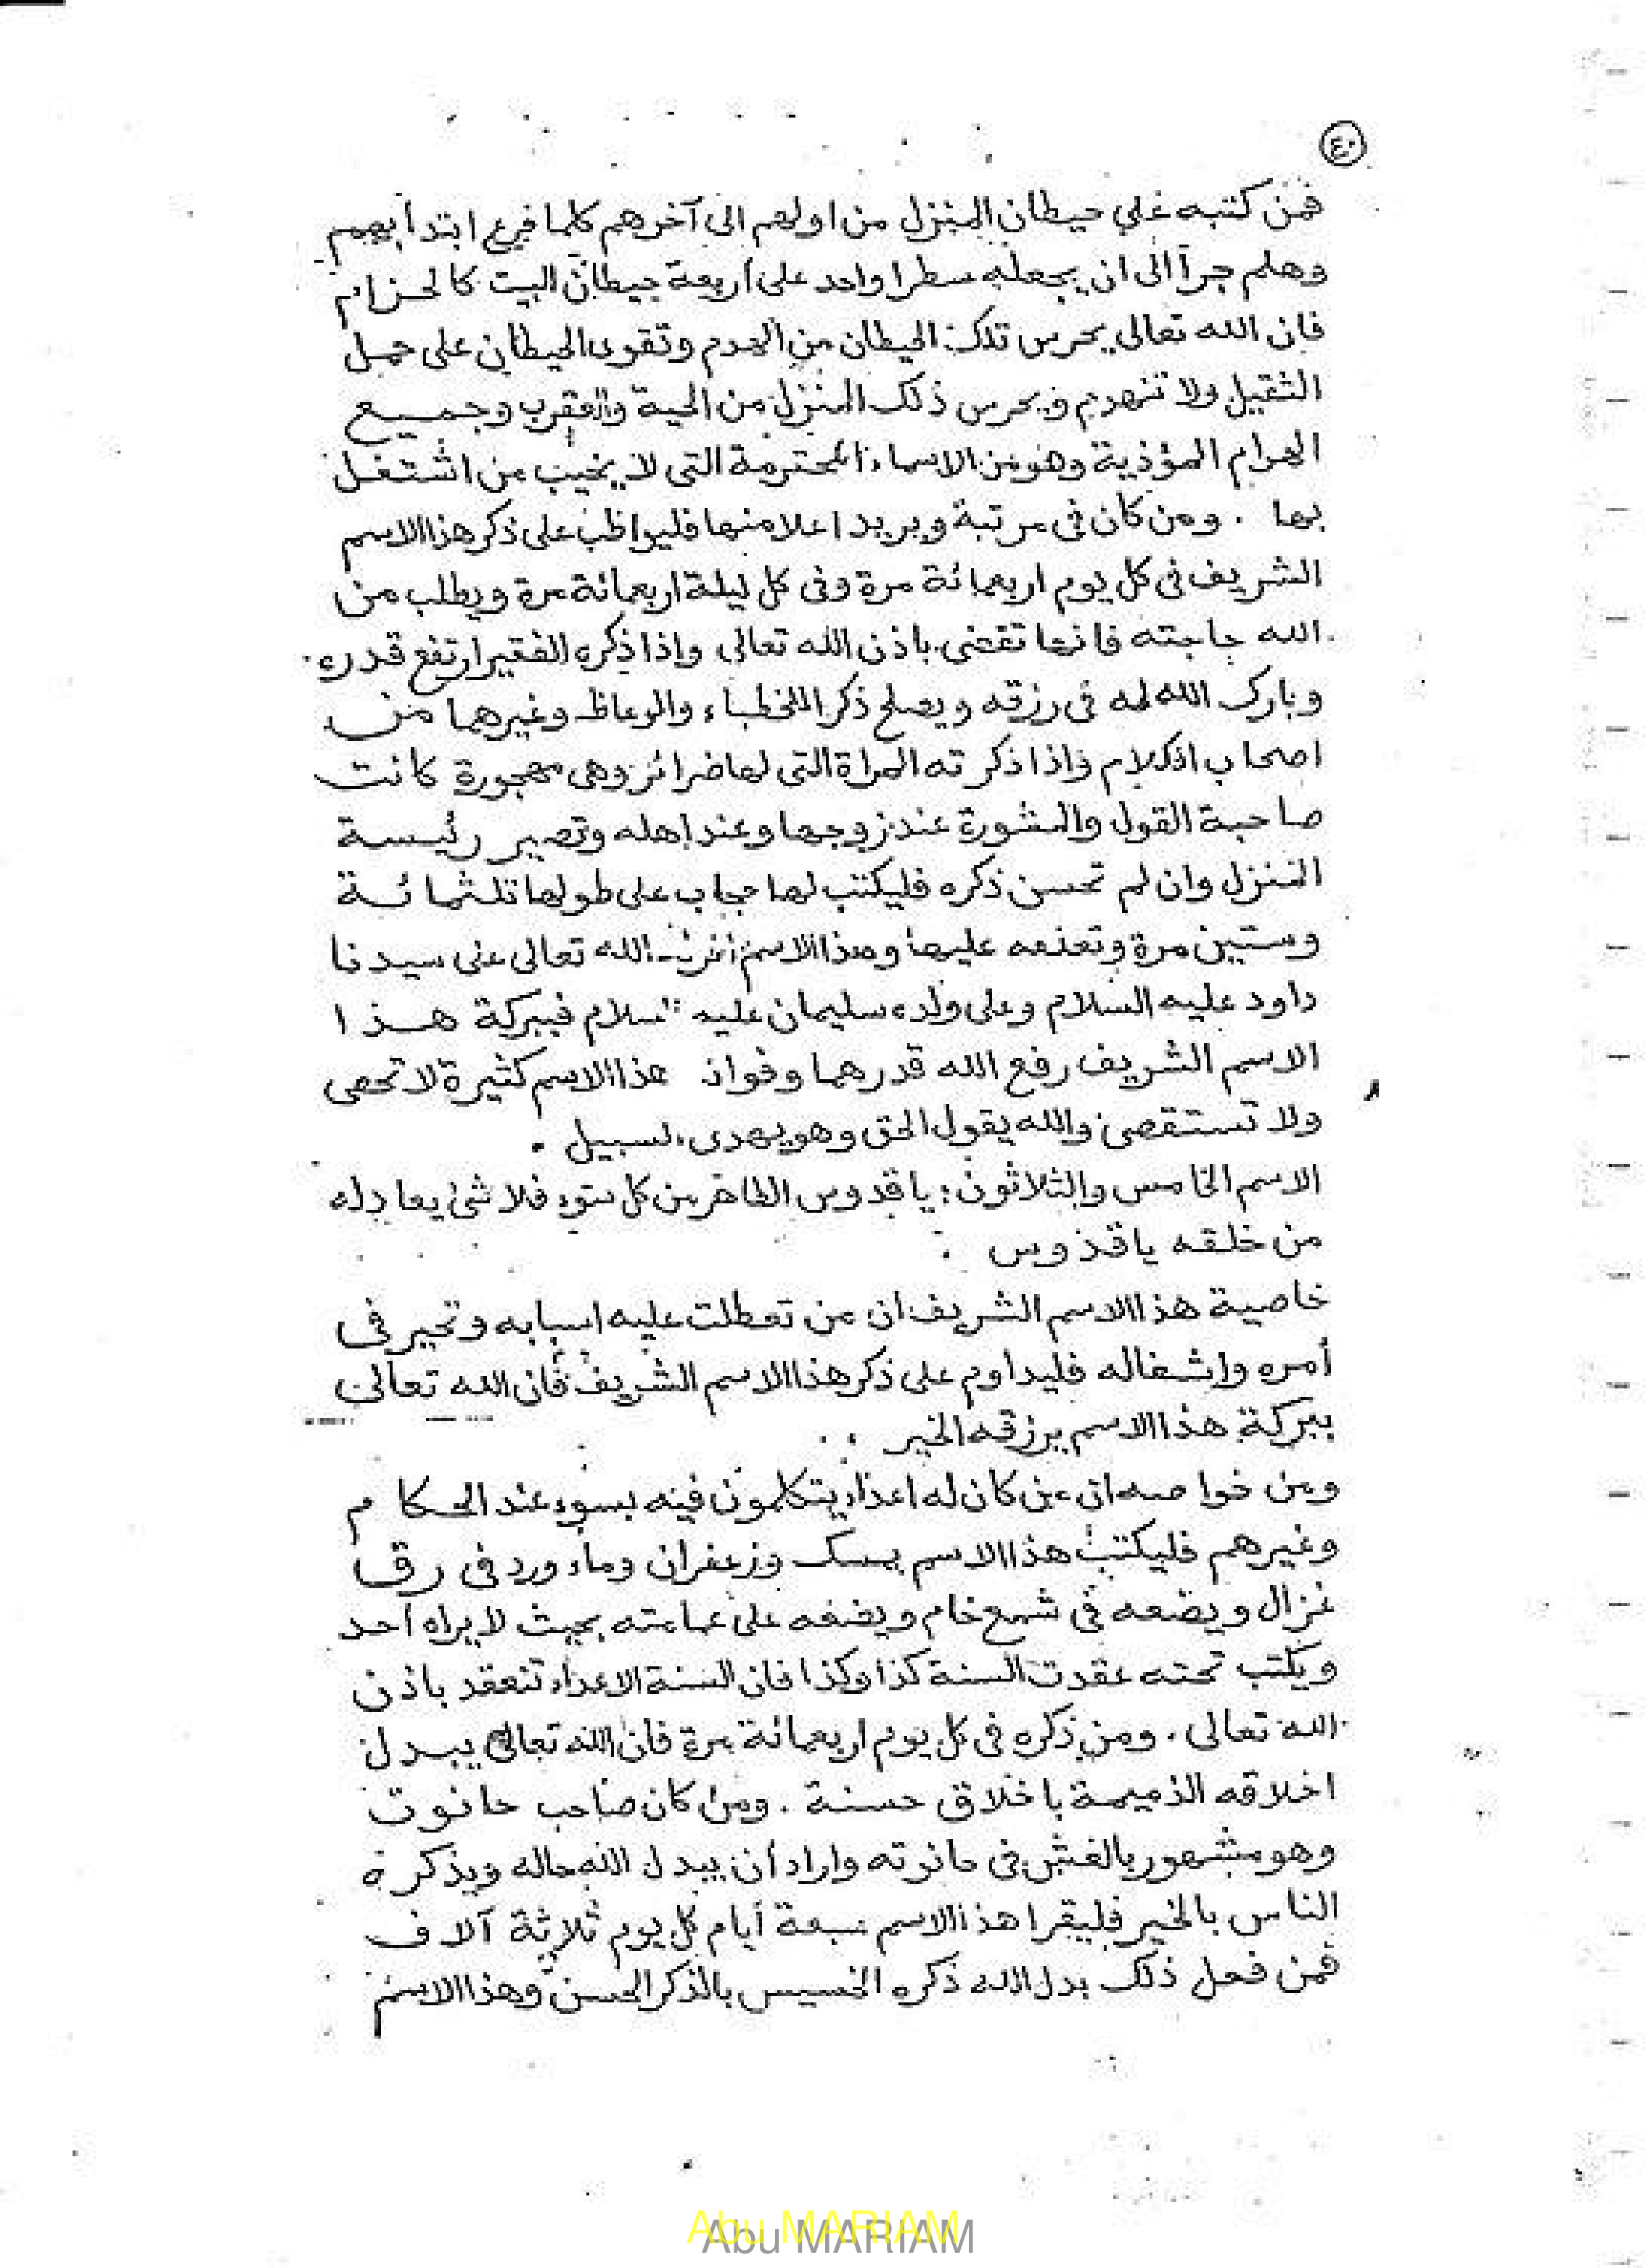 ٤٠
فمن كتبه على حيطان المنزل من اولهم الى آخرهم كلما فرغ ابتدأ بهم
وهلم جرا الى ان يجعله سطرا واحد على أربعة حيطان البيت كالحزام
فان الله تعالى يحرس تلك الحيطان من الهدم وتقوى الحيطان على حمل
الثقيل ولا تنهدم ويحرس ذلك المنزل من الحية والعقرب وجميع
الهرام المؤذية وهو من الاسماء المحترمة التى لا يخيب من اشتغل
بها . ومن كان فى مرتبة ويريد اعلا منها فليواظب على ذكر هذا الاسم
الشريف فى كل يوم اربعمائة مرة وفى كل ليلة اربعمائة مرة ويطلب من
الله حاجته فانها تقضى باذن الله تعالى واذا ذكره الفقير ارتفع قدره
وبارك الله له فى رزقه ويصلح ذكرا للخطباء والوعاظ وغيرهما من
اصحاب الكلام واذا ذكرته المراة التى لها ضرائر وهى مهجورة كانت
صاحبة القول والمشورة عند زوجها وعند اهله وتصير رئيسة
المنزل وان لم تحسن ذكره فليكتب لها حجاب على طولها تلثمائة
وستين مرة وتضعه عليها وهذا الاسم انزل الله تعالى على سيدنا
داود عليه السلام وعلى ولده سليمان عليه السلام فببركة هذا
الاسم الشريف رفع الله قدرهما وخواذ هذا الاسم كثيرة لا تحصى
ولا تستقصى والله يقول الحق وهو يهدى السبيل .
الاسم الخامس والثلاثون : يا قدوس الطاهر من كل سوء فلا شئ يعادله
من خلقه يا قدوس .
خاصية هذا الاسم الشريف ان من تعطلت عليه اسبابه وتحير فى
أمره واشغاله فليداوم على ذكر هذا الاسم الشريف فان الله تعالى
ببركة هذا الاسم يرزقه الخير .
ومن خواصه ان من كان له اعداء يتكلمون فيه بسوء عند الحكام
وغيرهم فليكتب هذا الاسم بمسك وزعفران وماء ورد فى رق
غزال ويضعه فى شمع خام ويضعه على عمامته بحيث لا يراه أحد
ويكتب تحته عقدت السنة كذا وكذا فان السنة الاعداء تنعقد باذن
الله تعالى . ومن ذكره فى كل يوم اربعمائة مرة فان الله تعالى يبدل
اخلاقه الذميمة باخلاق حسنة . ومن كان صاحب حانوت
وهو مشهور بالغش فى حانوته واراد أن يبدل الله حاله ويذكره
الناس بالخير فليقرا هذا الاسم سبعة أيام كل يوم ثلاثة آلاف
فمن فعل ذلك بدل الله ذكره الخسيس بالذكر الحسن وهذا الاسم
Abu MARIAM